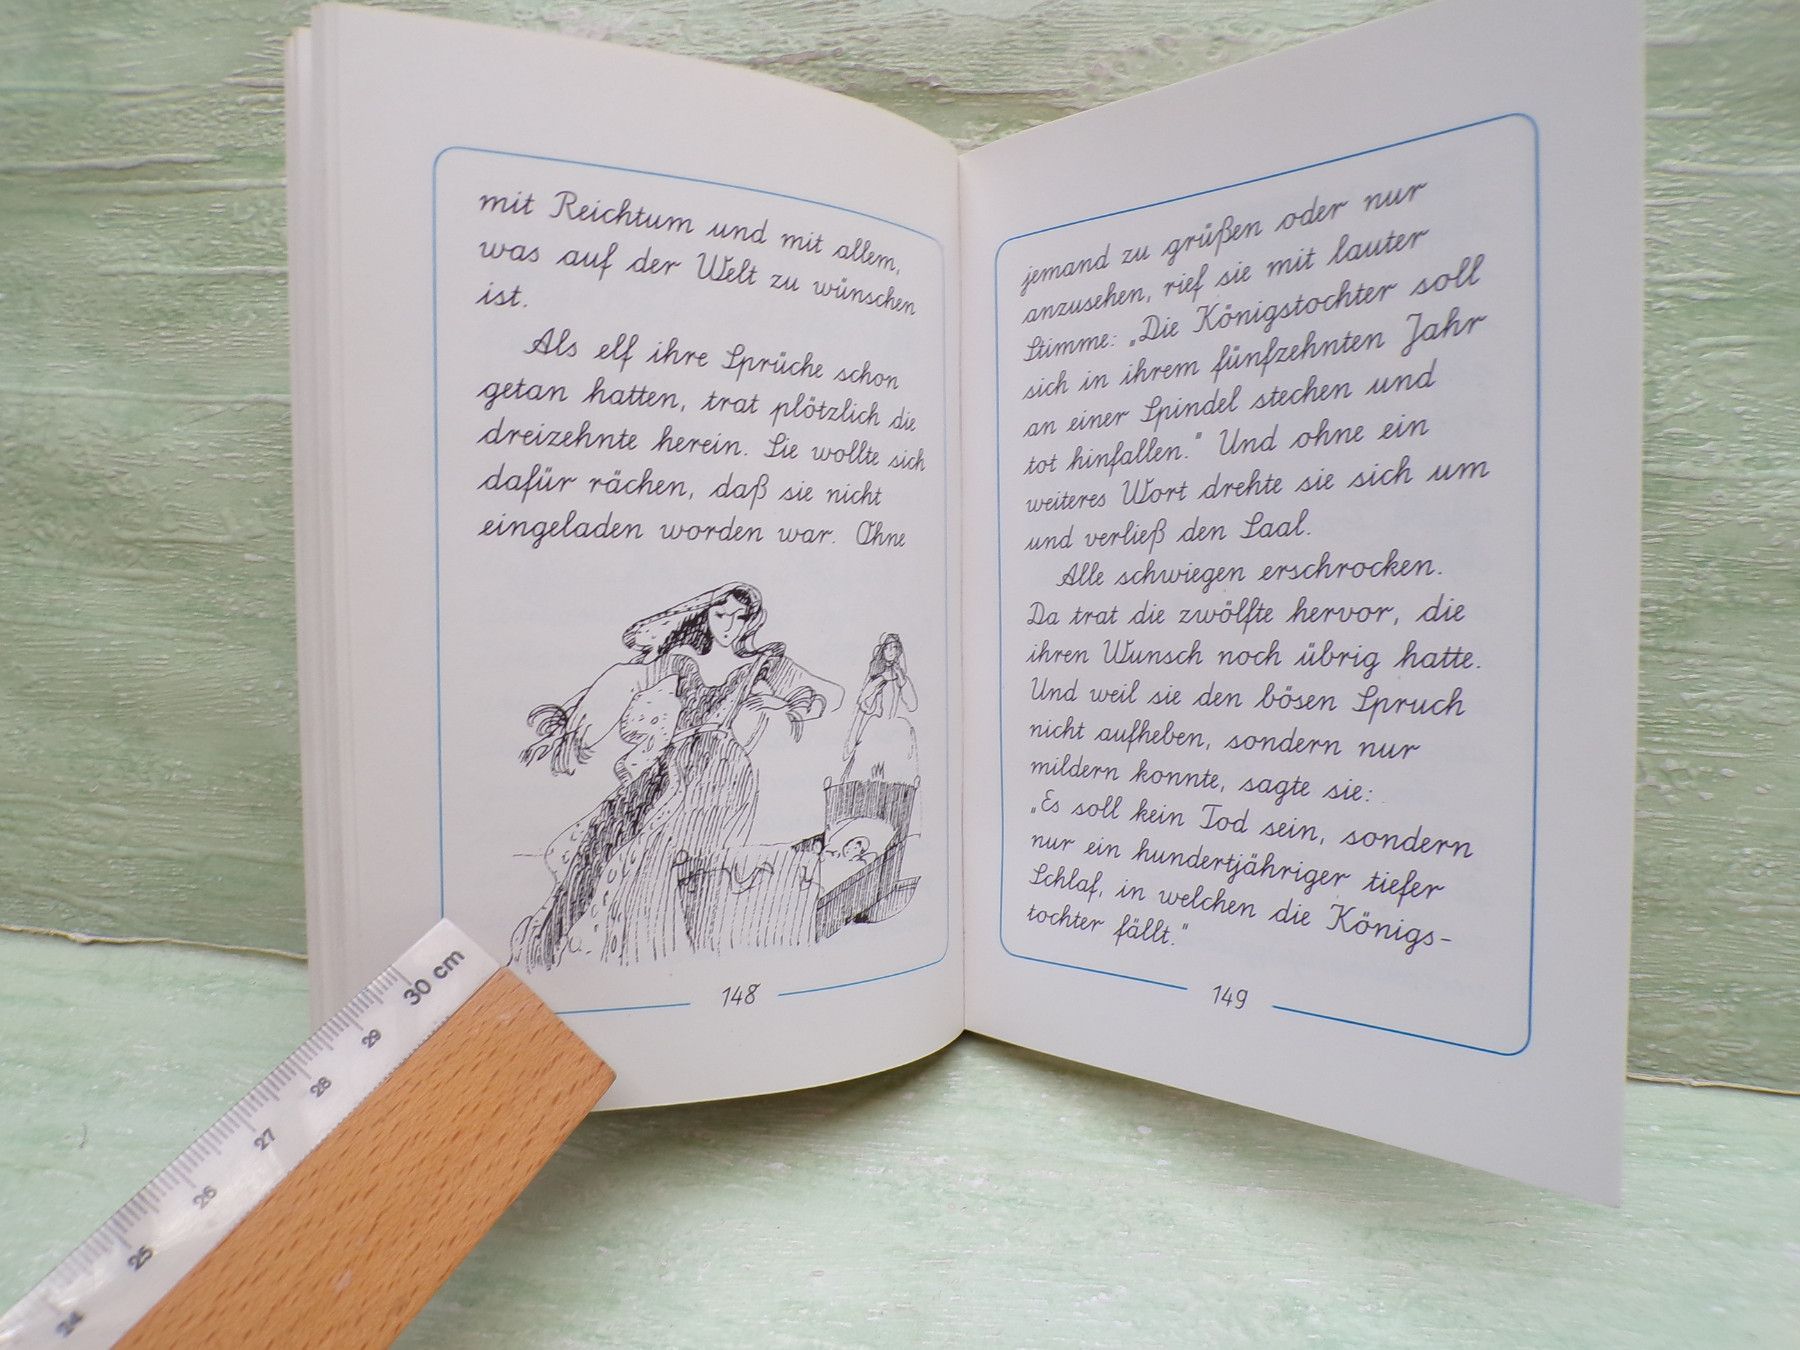 mit Reichtum und mit allem,
was auf der Welt zu wünschen
ist.
Als elf ihre Sprüche schon
getan hatten, trat plötzlich die
dreizehnte herein. Sie wollte sich
dafür rächen, daß sie nicht
eingeladen worden war. Ohne
148
jemand zu grüßen oder nur
anzusehen, rief sie mit lauter
Stimme: „Die Königstochter soll
sich in ihrem fünfzehnten Jahr
an einer Spindel stechen und
tot hinfallen.“ Und ohne ein
weiteres Wort drehte sie sich um
und verließ den Saal.
Alle schwiegen erschrocken.
Da trat die zwölfte hervor, die
ihren Wunsch noch übrig hatte.
Und weil sie den bösen Spruch
nicht aufheben, sondern nur
mildern konnte, sagte sie:
„Es soll kein Tod sein, sondern
nur ein hundertjähriger tiefer
Schlaf, in welchen die Königs-
tochter fällt.“
149
30 cm
29
28
27
26
25
24